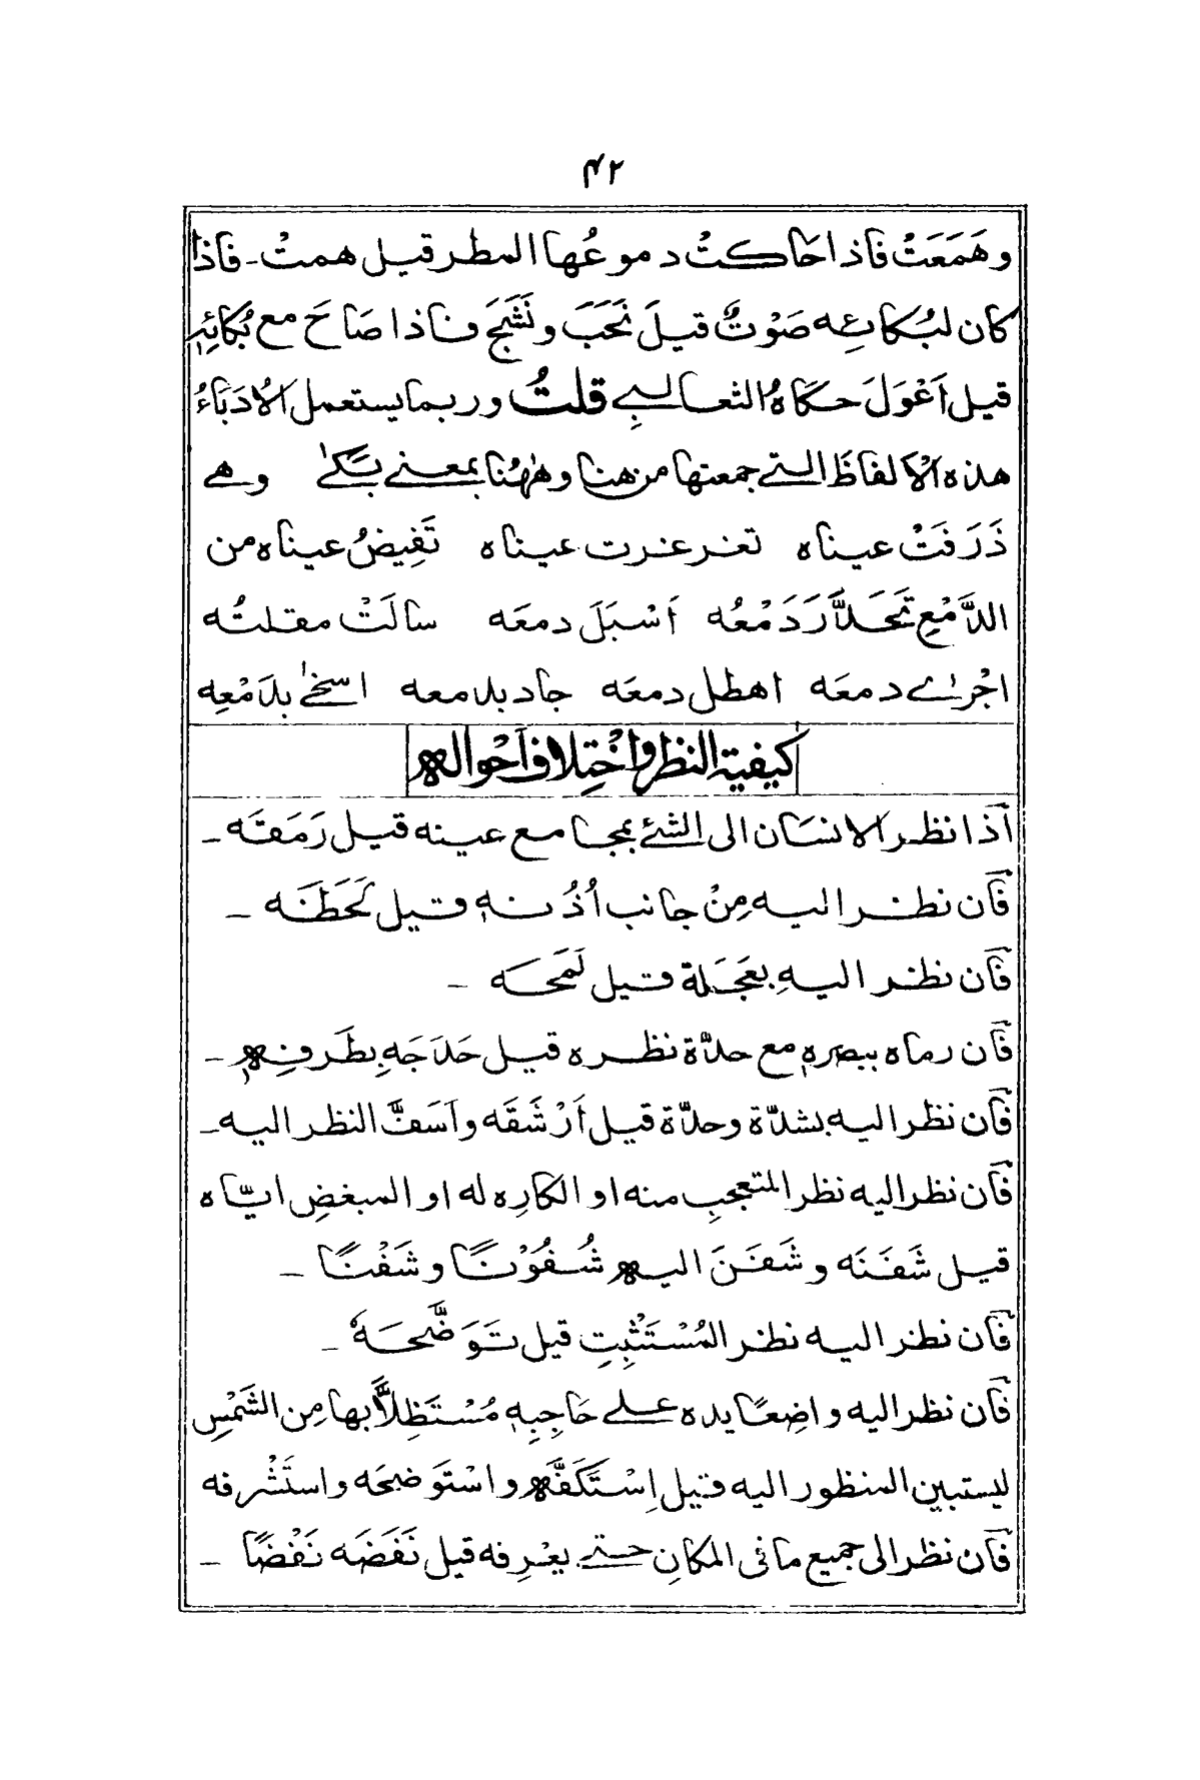 ۴۲
وهَمَعَتْ فَاذا حَاكتْ دموعُها المطر قيل همتْ۔ فَاذا
كان لبُكائِه صَوْتٌ قيلَ نَحَبَ ونَشَجَ فاذا صَاحَ مع بُكائِهٖ
قيل اَعْوَلَ حكَاهُ الثعالبِی قلتُ وربما يستعمل الاُدَبَاءُ
هذه الاَلفاظَ التی جمعتها من هنا وهٰهُنا بمعنی بَكیٰ وهی
ذَرَفَتْ عيناه تغرغرت عيناه تَفِيضُ عيناه من
الدَّمْعِ تَحَدَّرَ دَمْعُه اَسْبَلَ دمعَه سالَتْ مقلتُه
اجْریٰ دمعَه اهطل دمعَه جاد بدمعه اسخیٰ بدَمْعِه
كيفية النظر واخْتِلاف اَحْواله
اٰذا نظر الانسَان الی الشئ بمجامع عينه قيل رَمَقَه۔
فَاٰن نظر اليه مِنْ جانب اُذُنه قيل لَحَظَه ۔
فَاٰن نظر اليهِ بعَجَلة قيل لَمَحَه ۔
فَاٰن رماه ببصرهٖ مع حدّة نظره قيل حَدَجَهِ بِطَرفِهٖ ۔
فَاٰن نظر اليه بشدّة وحدّة قيل اَرْشَقَه واَسَفَّ النظر اليه۔
فَاٰن نظر اليه نظر المتعجبِ منه او الكارِه له او المبغضِ ايّاه
قيل شَفَنَه وشَفَنَ اليه شُفُوْنًا وشَفْنًا ۔
فَاٰن نظر اليه نظر المُسْتَثْبِتِ قيل تَوَضَّحَهٗ ۔
فَاٰن نظر اليه واضِعًا يده علی حَاجِبِهٖ مُسْتَظِلاًّ بها مِن الشَمْسِ
ليستبين المنظور اليه قيل اِسْتَكَفَّه واسْتَوضحَه واستَشْرفه
فَاٰن نظر الی جميع ما فی المكانِ حتی يعْرِفه قيل نَفَضَه نَفْضًا ۔